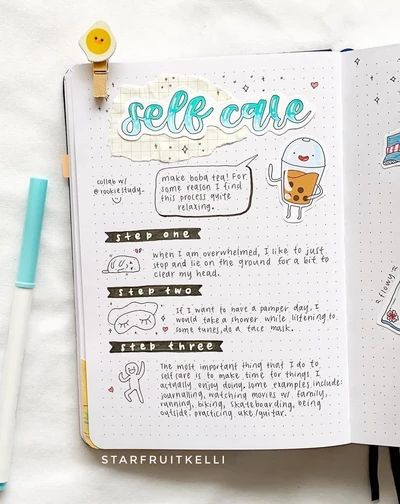 self care
collab w/
@rookiestudy_
make boba tea! For
some reason I find
this process quite
relaxing.
step one
when I am overwhelmed, I like to just
stop and lie on the ground for a bit to
clear my head.
step two
If I want to have a pamper day, I
would take a shower while listening to
some tunes, do a face mask.
step three
The most important thing that I do to
self care is to make time for things I
actually enjoy doing, some examples include:
journalling, watching movies w/ family,
running, biking, skateboarding, being
outside, practicing uke/guitar.
flowy
STARFRUITKELLI